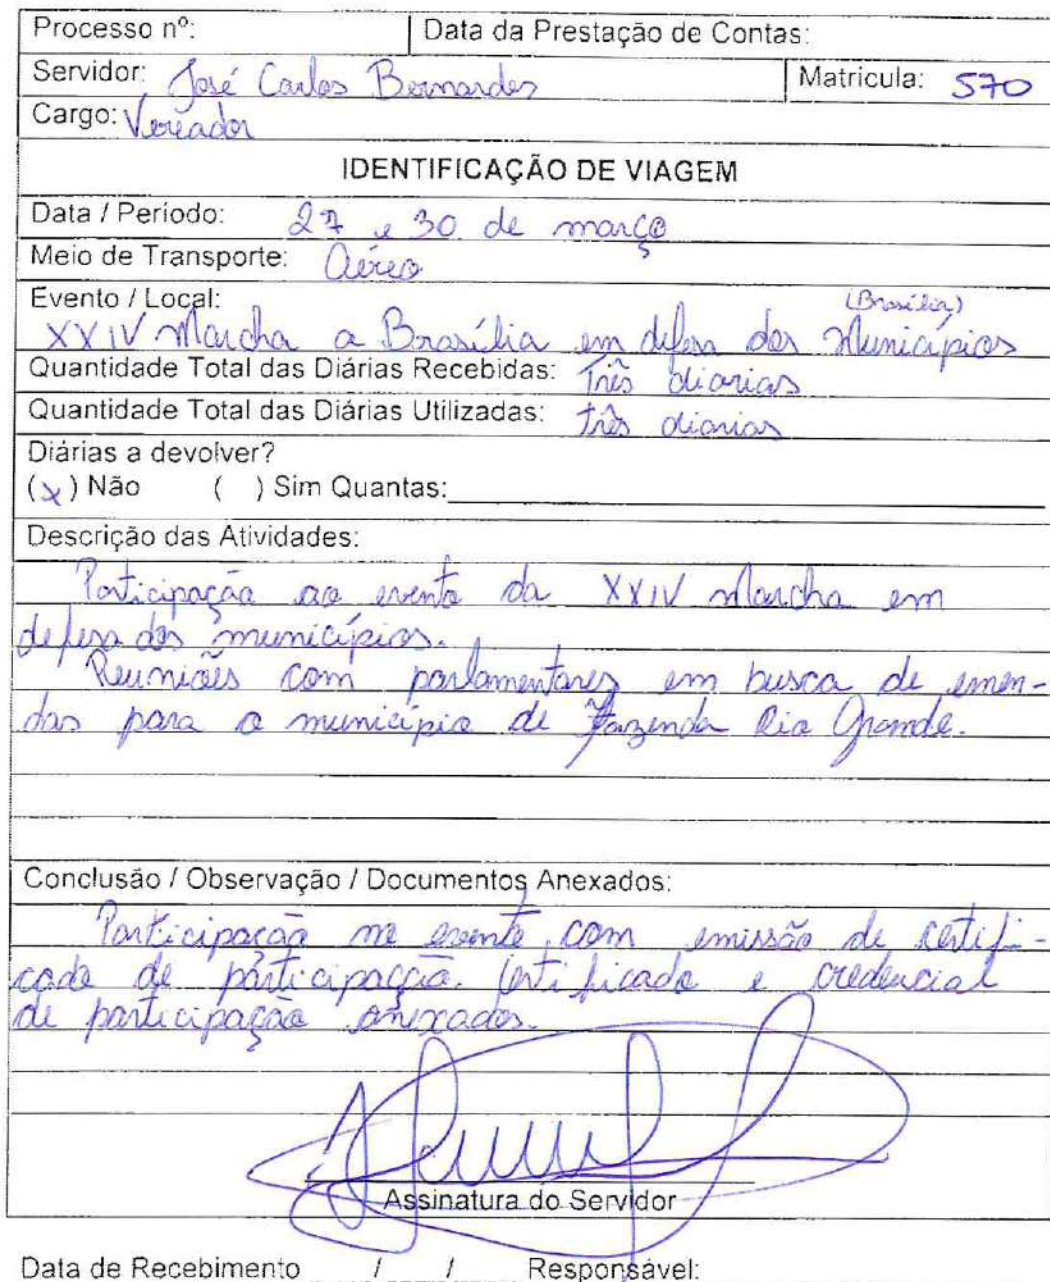 Processo nº: Data da Prestação de Contas:
Servidor: José Carlos Bernardes Matricula: 570
Cargo: Vereador
IDENTIFICAÇÃO DE VIAGEM
Data / Período: 27 e 30 de março
Meio de Transporte: Aéreo
Evento / Local: (Brasília)
XXIV Marcha a Brasília em defesa dos Municípios
Quantidade Total das Diárias Recebidas: Três diarias
Quantidade Total das Diárias Utilizadas: três diarias
Diárias a devolver?
(x) Não ( ) Sim Quantas:
Descrição das Atividades:
Participação ao evento da XXIV marcha em
defesa dos municípios.
Reuniões com parlamentares em busca de emen-
das para o município de Fazenda Rio Grande.
Conclusão / Observação / Documentos Anexados:
Participação no evento com emissão de certifi-
cado de participação. Certificado e credencial
de participação anexados.
Assinatura do Servidor
Data de Recebimento / / Responsável: